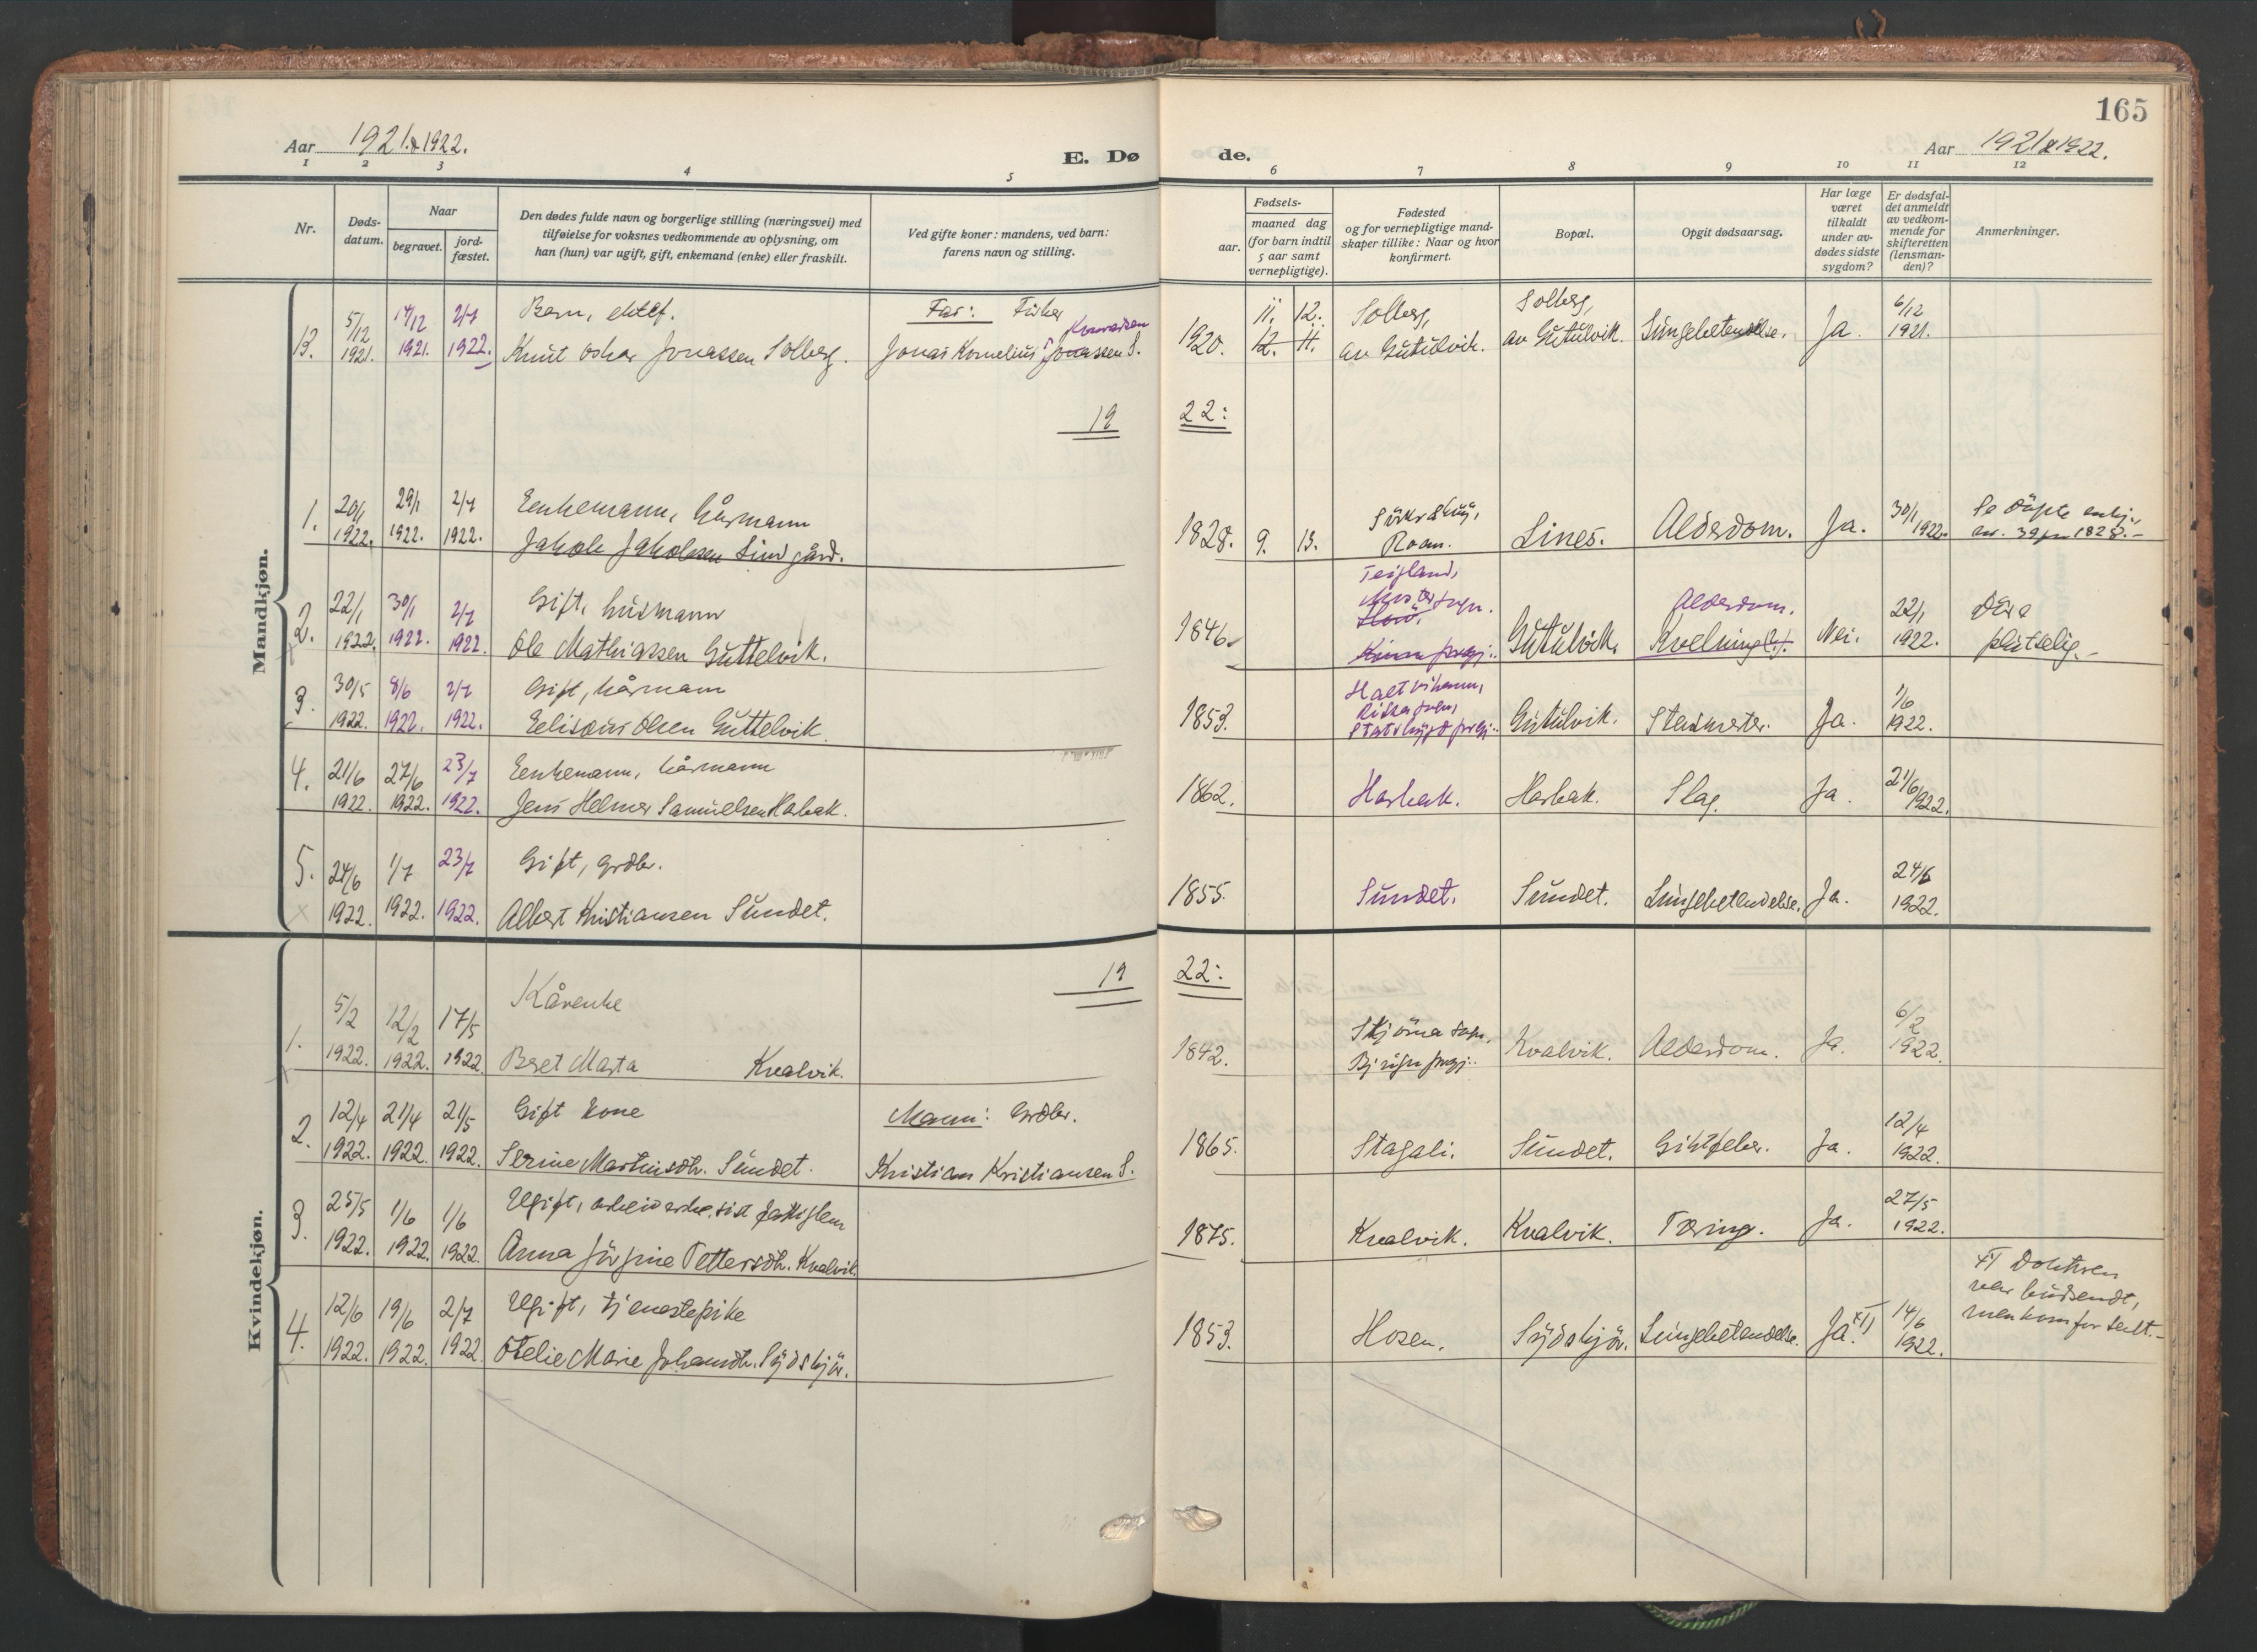 165
Aar 1921 & 1922.
E. Dø de.
Aar 1921 & 1922.
1 2 3 4 5 6 7 8 9 10 11 12
Nr.
Døds-
datum.
Naar
begravet.
jord-
fæstet.
Den dødes fulde navn og borgerlige stilling (næringsvei) med
tilføielse for voksnes vedkommende av oplysning, om
han (hun) var ugift, gift, enkemand (enke) eller fraskilt.
Ved gifte koner: mandens, ved barn:
farens navn og stilling.
Fødsels-
aar.
maaned dag
(for barn indtil
5 aar samt
vernepligtige).
Fødested
og for vernepligtige mand-
skaper tillike: Naar og hvor
konfirmert.
Bopæl.
Opgit dødsaarsag.
Har læge
været
tilkaldt
under av-
dødes sidste
sygdom?
Er dødsfal-
det anmeldt
av vedkom-
mende for
skifteretten
(lensman-
den)?
Anmerkninger.
Mandkjøn.
Barn, ektef. Far: Fisker Konradsen 11. 12. Solberg, Solberg,
13. 5/12 1921. 14/12 1921. 2/7 1922. Knut Oskar Jonassen Solberg. Jonas Kornelius Jonassen S. 1920. 12. 11. av Gutulvik. av Gutulvik. Lungebetendelse. Ja. 6/12 1921.
19 22:
1. 20/1 1922. 29/1 1922. 2/7 1922. Eenkemann, kårmann
Jakob Jakobsen Lind gård. 1828. 9. 13. Roan. Lines. Alderdom. Ja. 30/1 1922. Se døpte
1828.-
2. 22/1 1922. 30/1 1922. 2/7 1922. Gift, husmann Teigland,
Alderdom.
Ole Mathiassen Guttelvik. 1846. Kinn prgj. Gutulvik. Kvelning(?). Nei. 22/1 1922. Døde
plutselig.-
3. 30/5 1922. 8/6 1922. 2/7 1922. Gift, kårmann
Eelisæus Olsen Guttelvik. 1853. Rissa sogn,
Stadsbygd prgj. Gutulvik. Ja. 1/6 1922.
4. 21/6 1922. 27/6 1922. 23/7 1922. Eenkemann, kårmann
Jens Helmer Samuelsen Harbak. 1862. Harbak. Harbak. Slag. Ja. 21/6 1922.
5. 24/6 1922. 1/7 1922. 23/7 1922. Gift, grdbr.
Albert Kristiansen Sundet. 1855. Sundet. Sundet. Lungebetendelse. Ja. 24/6 1922.
Kvindekjøn.
19 22:
1. 5/2 1922. 12/2 1922. 17/5 1922. Kårenke
Beret Marta Kvalvik. 1842. Stjørna sogn,
Bjugn prgj. Kvalvik. Alderdom. Ja. 6/2 1922.
2. 12/4 1922. 21/4 1922. 21/5 1922. Gift kone Mann: Grdbr.
Serine Martinsdtr. Sundet. Kristian Kristiansen S. 1865. Stagali. Sundet. Giktfeber. Ja. 12/4 1922.
3. 25/5 1922. 1/6 1922. 1/6 1922. Ugift, arbeiderske, sist fattiglem
Anna Jørgine Pettersdtr. Kvalvik. 1875. Kvalvik. Kvalvik. Tæring. Ja. 27/5 1922.
4. 12/6 1922. 19/6 1922. 2/7 1922. Ugift, tjenestepike
Otelie Marie Johansdtr. Sydskjør. 1853. Hosen. Sydskjør. Lungebetendelse. Ja. x) 14/6 1922. x) Doktoren
var budsendt,
men kom for sent.-